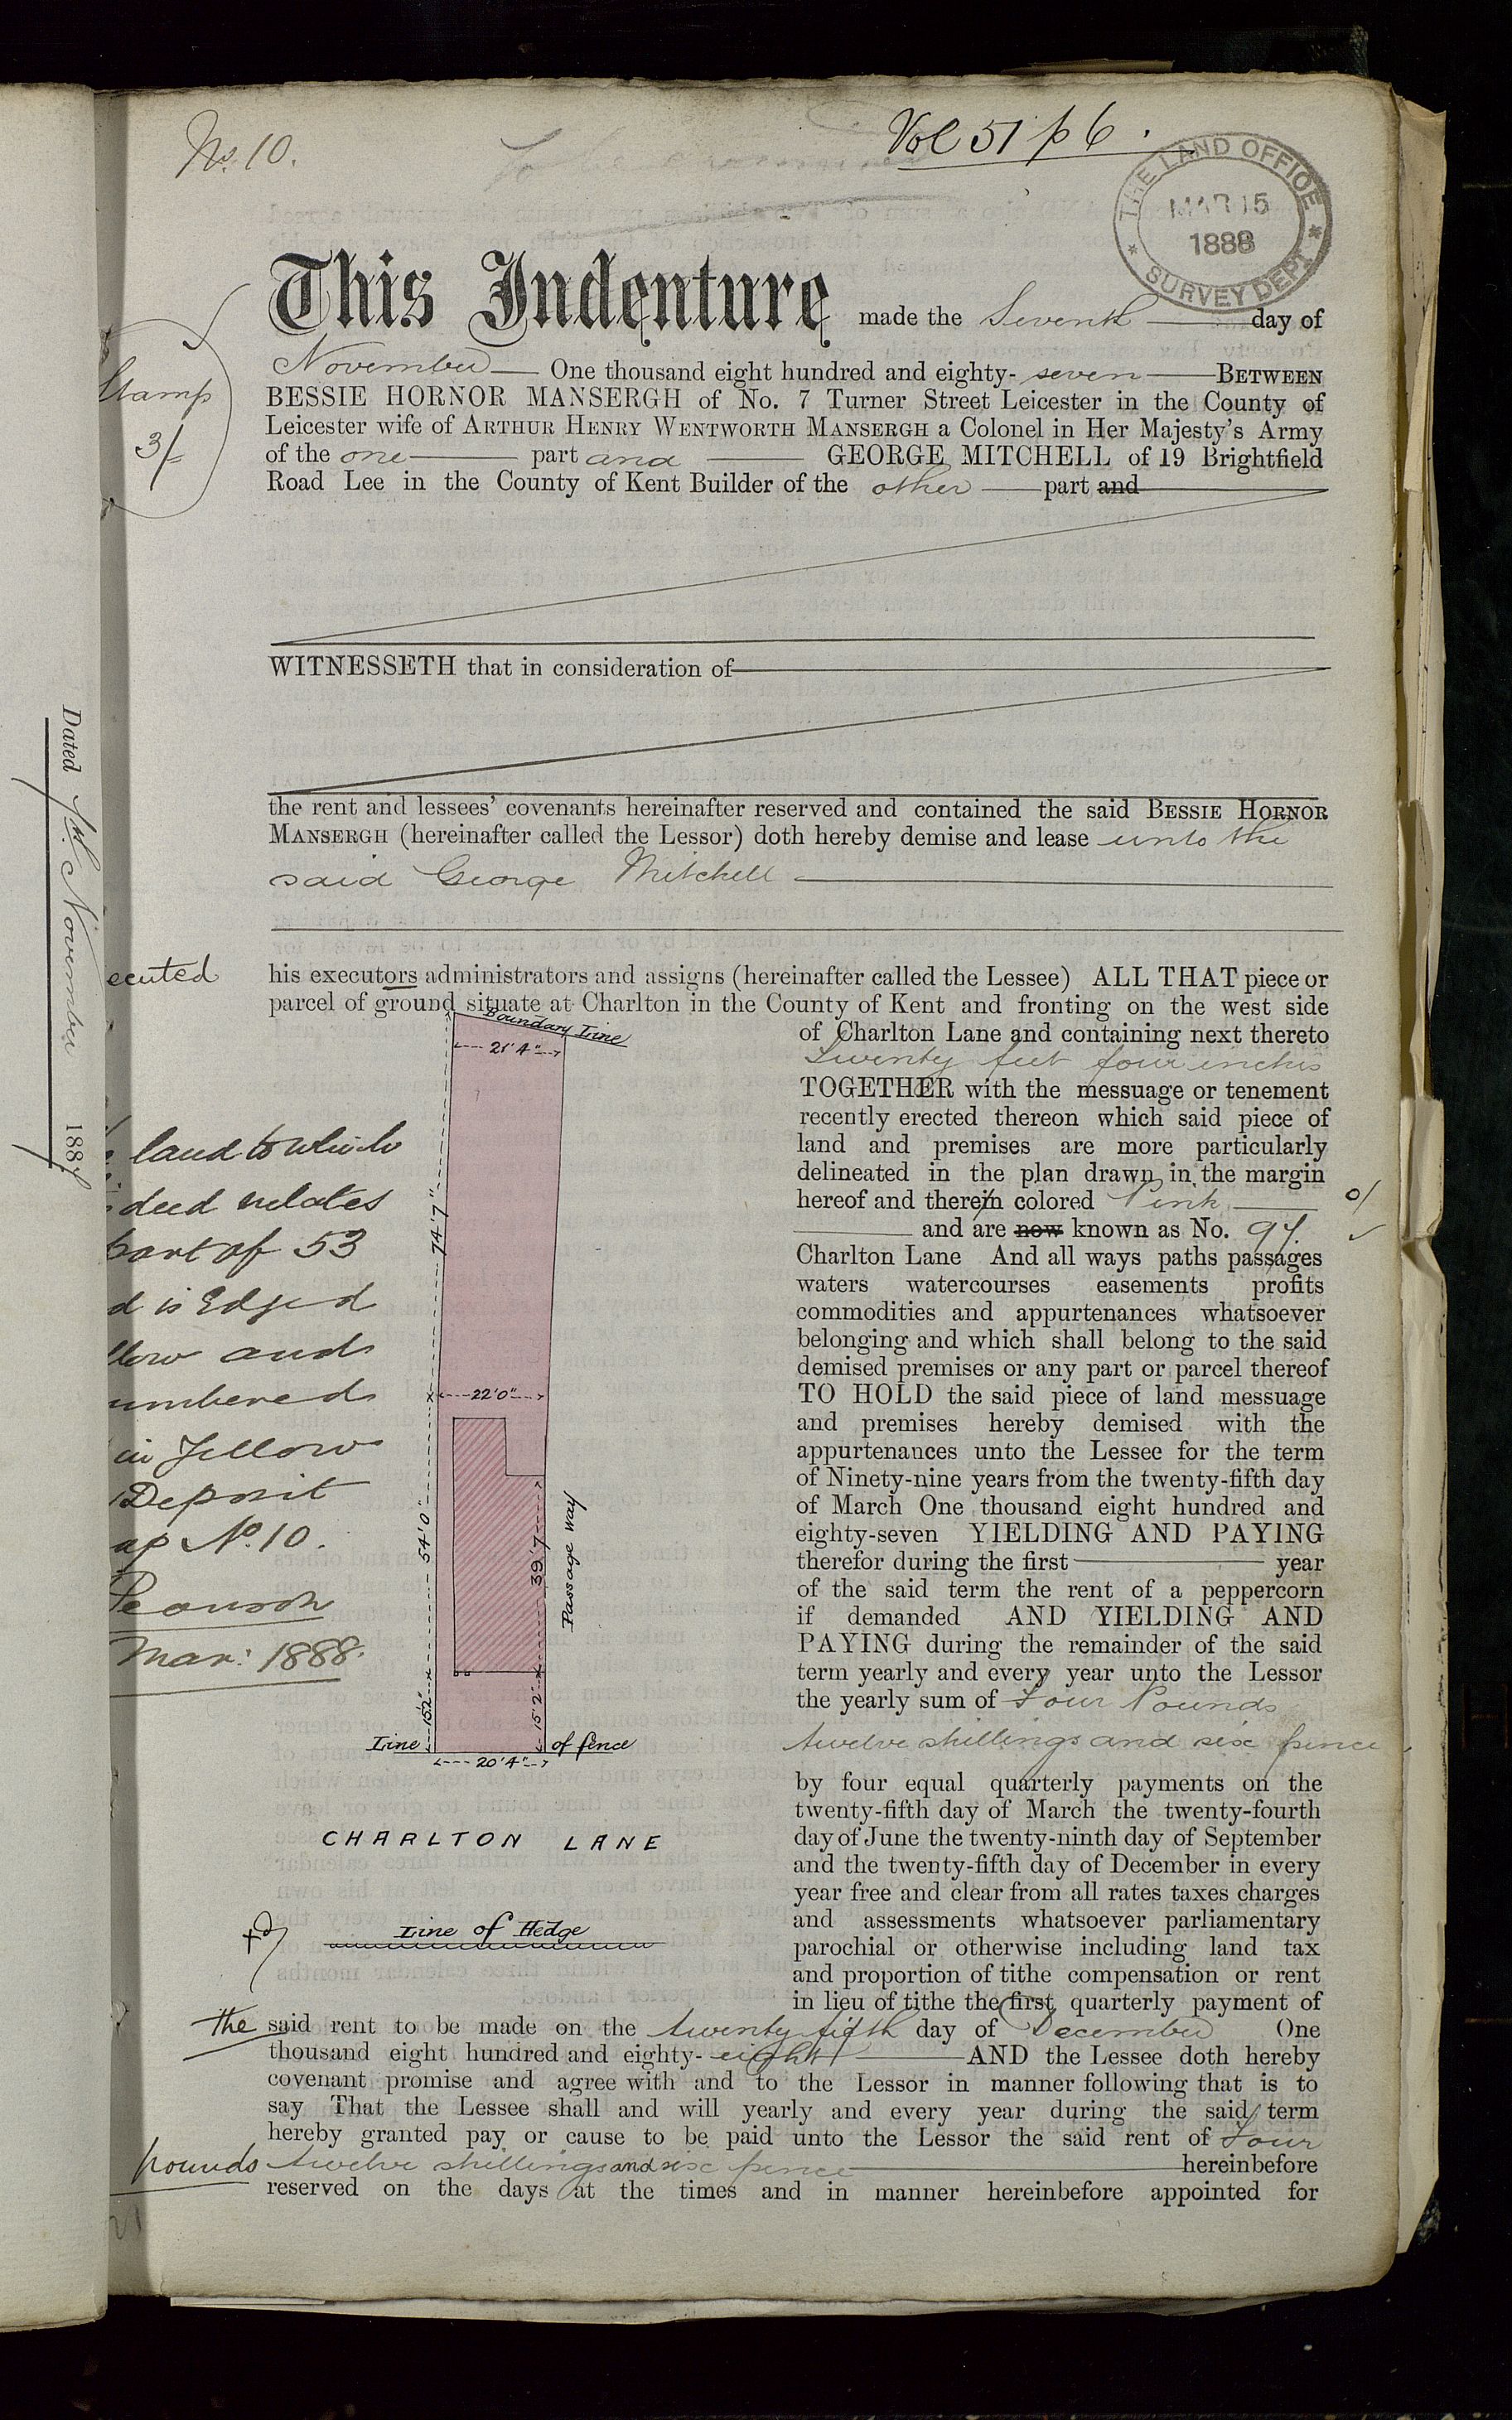 No. 10.
Vol 51 p 6.
THE LAND OFFICE
MAR 15
1888
* SURVEY DEPT *
This Indenture made the Seventh day of
November One thousand eight hundred and eighty-seven BETWEEN
BESSIE HORNOR MANSERGH of No. 7 Turner Street Leicester in the County of
Leicester wife of ARTHUR HENRY WENTWORTH MANSERGH a Colonel in Her Majesty's Army
of the one part and GEORGE MITCHELL of 19 Brightfield
Road Lee in the County of Kent Builder of the other part and
Stamp
3/-
WITNESSETH that in consideration of
the rent and lessees' covenants hereinafter reserved and contained the said BESSIE HORNOR
MANSERGH (hereinafter called the Lessor) doth hereby demise and lease unto the
said George Mitchell
Dated 7th November 1887
ecuted
his executors administrators and assigns (hereinafter called the Lessee) ALL THAT piece or
parcel of ground situate at Charlton in the County of Kent and fronting on the west side
of Charlton Lane and containing next thereto
twenty feet four inches
TOGETHER with the messuage or tenement
recently erected thereon which said piece of
land and premises are more particularly
delineated in the plan drawn in the margin
hereof and therein colored Pink
and are now known as No. 97.
Charlton Lane And all ways paths passages
waters watercourses easements profits
commodities and appurtenances whatsoever
belonging and which shall belong to the said
demised premises or any part or parcel thereof
TO HOLD the said piece of land messuage
and premises hereby demised with the
appurtenances unto the Lessee for the term
of Ninety-nine years from the twenty-fifth day
of March One thousand eight hundred and
eighty-seven YIELDING AND PAYING
therefor during the first year
of the said term the rent of a peppercorn
if demanded AND YIELDING AND
PAYING during the remainder of the said
term yearly and every year unto the Lessor
the yearly sum of Four Pounds
twelve shillings and six pence
by four equal quarterly payments on the
twenty-fifth day of March the twenty-fourth
day of June the twenty-ninth day of September
and the twenty-fifth day of December in every
year free and clear from all rates taxes charges
and assessments whatsoever parliamentary
parochial or otherwise including land tax
and proportion of tithe compensation or rent
in lieu of tithe the first quarterly payment of
land to which
deed relates
part of 53
d is Edged
llow and
umbered
in Yellow
Deposit
ap No. 10.
Mar: 1888.
Boundary Line
21'4"
74'7"
22'0"
54'0"
39'7"
Passage way
15'2"
15'2"
Line of fence
20'4"
CHARLTON LANE
Line of Hedge
the said rent to be made on the twenty fifth day of December One
thousand eight hundred and eighty-eight AND the Lessee doth hereby
covenant promise and agree with and to the Lessor in manner following that is to
say That the Lessee shall and will yearly and every year during the said term
hereby granted pay or cause to be paid unto the Lessor the said rent of Four
pounds twelve shillings and six pence hereinbefore
reserved on the days at the times and in manner hereinbefore appointed for